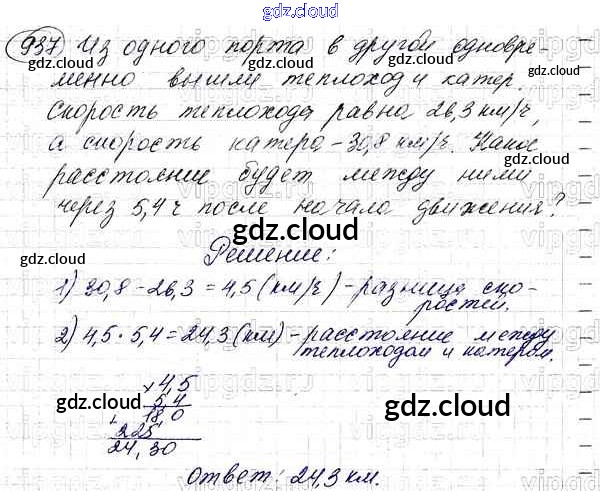 gdz.cloud
937) Из одного порта в другой одновре-
менно вышли теплоход и катер.
Скорость теплохода равна 26,3 км/ч,
а скорость катера – 30,8 км/ч. Какое
расстояние будет между ними
через 5,4 ч после начала движения?
Решение:
1) 30,8 - 26,3 = 4,5 (км/ч) - разница ско-
ростей.
2) 4,5 · 5,4 = 24,3 (км) - расстояние между
теплоходом и катером.
× 4,5
5,4
+ 180
225
24,30
Ответ: 24,3 км.
gdz.cloud
gdz.cloud
gdz.cloud
gdz.cloud
gdz.cloud
gdz.cloud
gdz.cloud
gdz.cloud
gdz.cloud